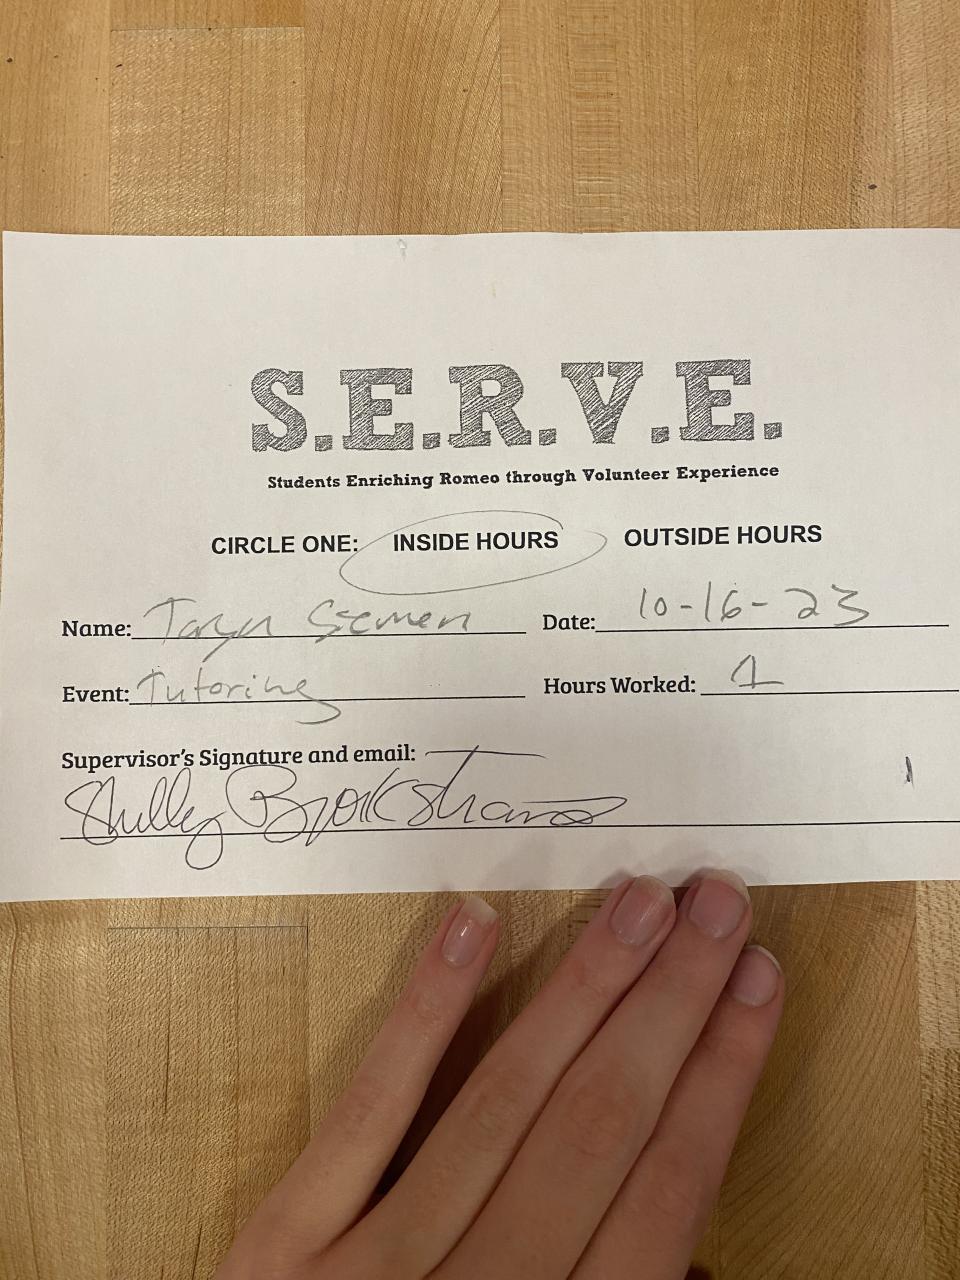 S.E.R.V.E.
Students Enriching Romeo through Volunteer Experience
CIRCLE ONE: INSIDE HOURS OUTSIDE HOURS
Name: Taryn Siemen Date: 10-16-23
Event: Tutoring Hours Worked: 1
Supervisor's Signature and email:
Shelly